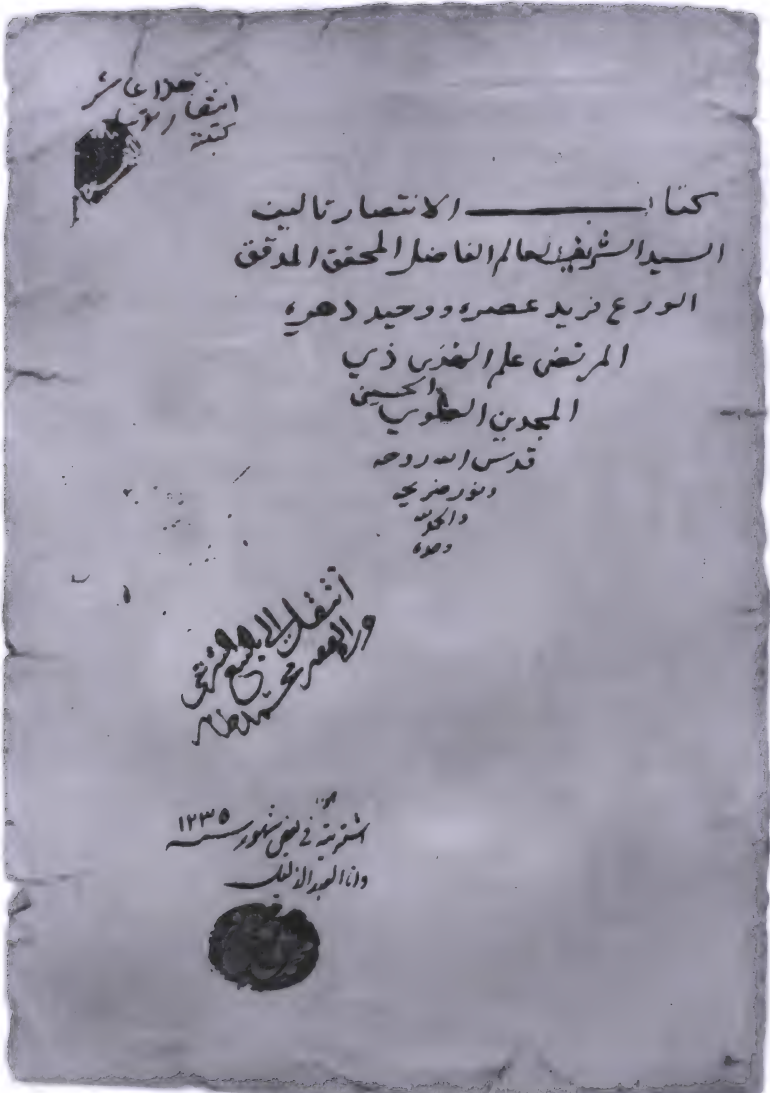 كتاب الانتصار تاليف
السيد الشريف العالم الفاضل المحقق المدقق
الورع فريد عصره ووحيد دهره
المرتضى علم الهدى ذي
المجدين العلوي الحسيني
قدس الله روحه
ونور ضريحه
والحمد لله
وحده
انتقل الي بالبيع الشرعي
وانا
اشتريته في بعض شهور سنه ١٢٣٥
وانا العبد الذليل